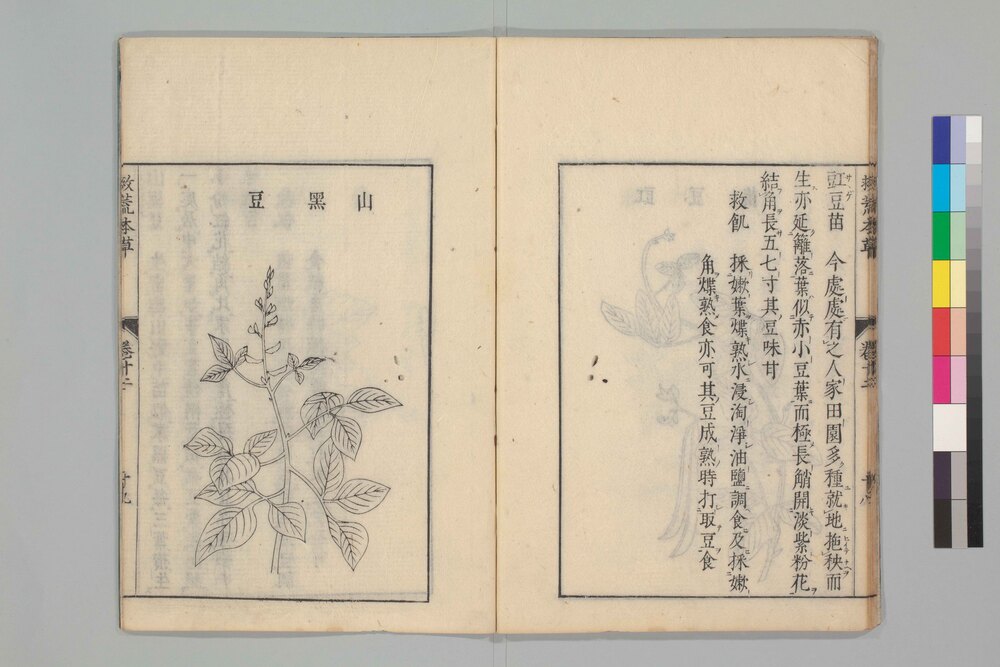 救荒本草 卷十二 十八
豇豆苗 今處處有之人家田園多種就地拖秧而
生亦延籬落葉似赤小豆葉而極長艄開淡紫粉花
結角長五七寸其豆味甘
救飢 採嫩葉煠熟水浸淘淨油鹽調食及採嫩
角煠熟食亦可其豆成熟時打取豆食
山黑豆
救荒本草 卷十二 十九